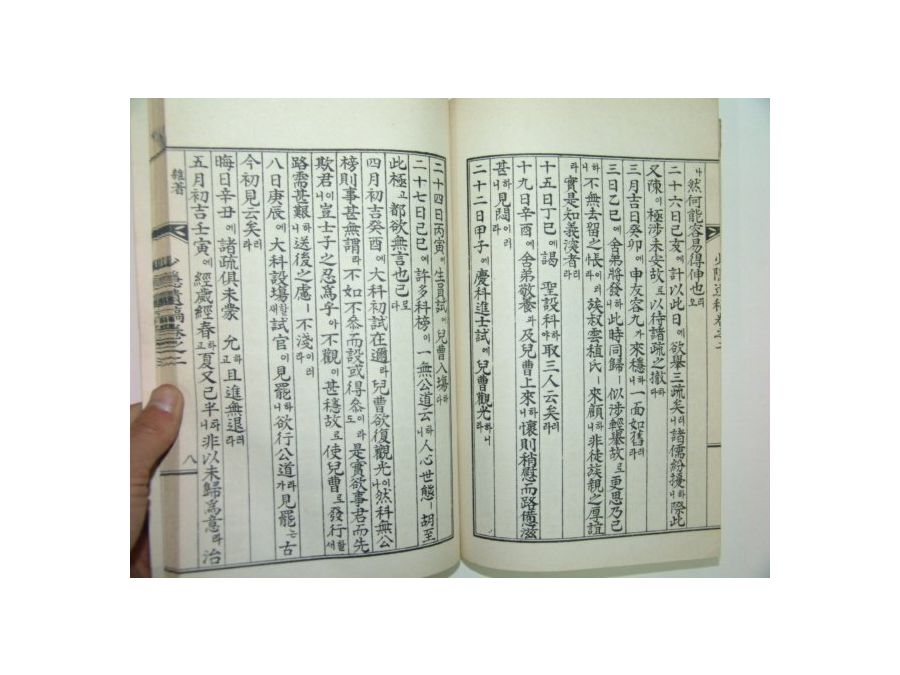 然何能容易得伸也리오
二十六日己亥에計以此日에欲擧三疏矣러니諸儒紛擾하니際此
又陳이極涉未安故로以待諸疏之撤하라
三月吉日癸卯에申友容九가來穩하니一面如舊러라
三日乙巳에舍弟將發하니此時同歸ㅣ似涉輕擧故로更思乃已
하니不無去留之悵이러라族叔雲植氏ㅣ來顧하니非徒族親之厚誼
라實是知義淡者러라
十五日丁巳에謁聖設科하야取三人云矣러라
十九日辛酉에舍弟敬養과及兒曹上來하니懷則稍慰而路憊滋
甚하니見悶이러라
二十二日甲子에慶科進士試에兒曹觀光하니라
二十四日丙寅에生員試에兒曹入場하다
二十七日己巳에許多科榜이一無公道云하니人心世態ㅣ胡至
此極고都欲無言也已로다
四月初吉癸酉에大科初試在邇라兒曹欲復觀光이나然科無公
榜則事甚無謂라不如不參而設或得參도이라是實欲事君而先
欺君이니豈士子之忍爲乎아不觀이甚穩故로使兒曹로發行할새
路需甚艱하니送後之慮ㅣ不淺이러라
八日庚辰에大科設場할새試官이見罷하니欲行公道가라見罷는古
今初見云矣러라
晦日辛丑에諸疏俱未蒙允하고且進無退러라
五月初吉壬寅에經歲經春하고夏又已半하니非以未歸爲意라治
雜著
八